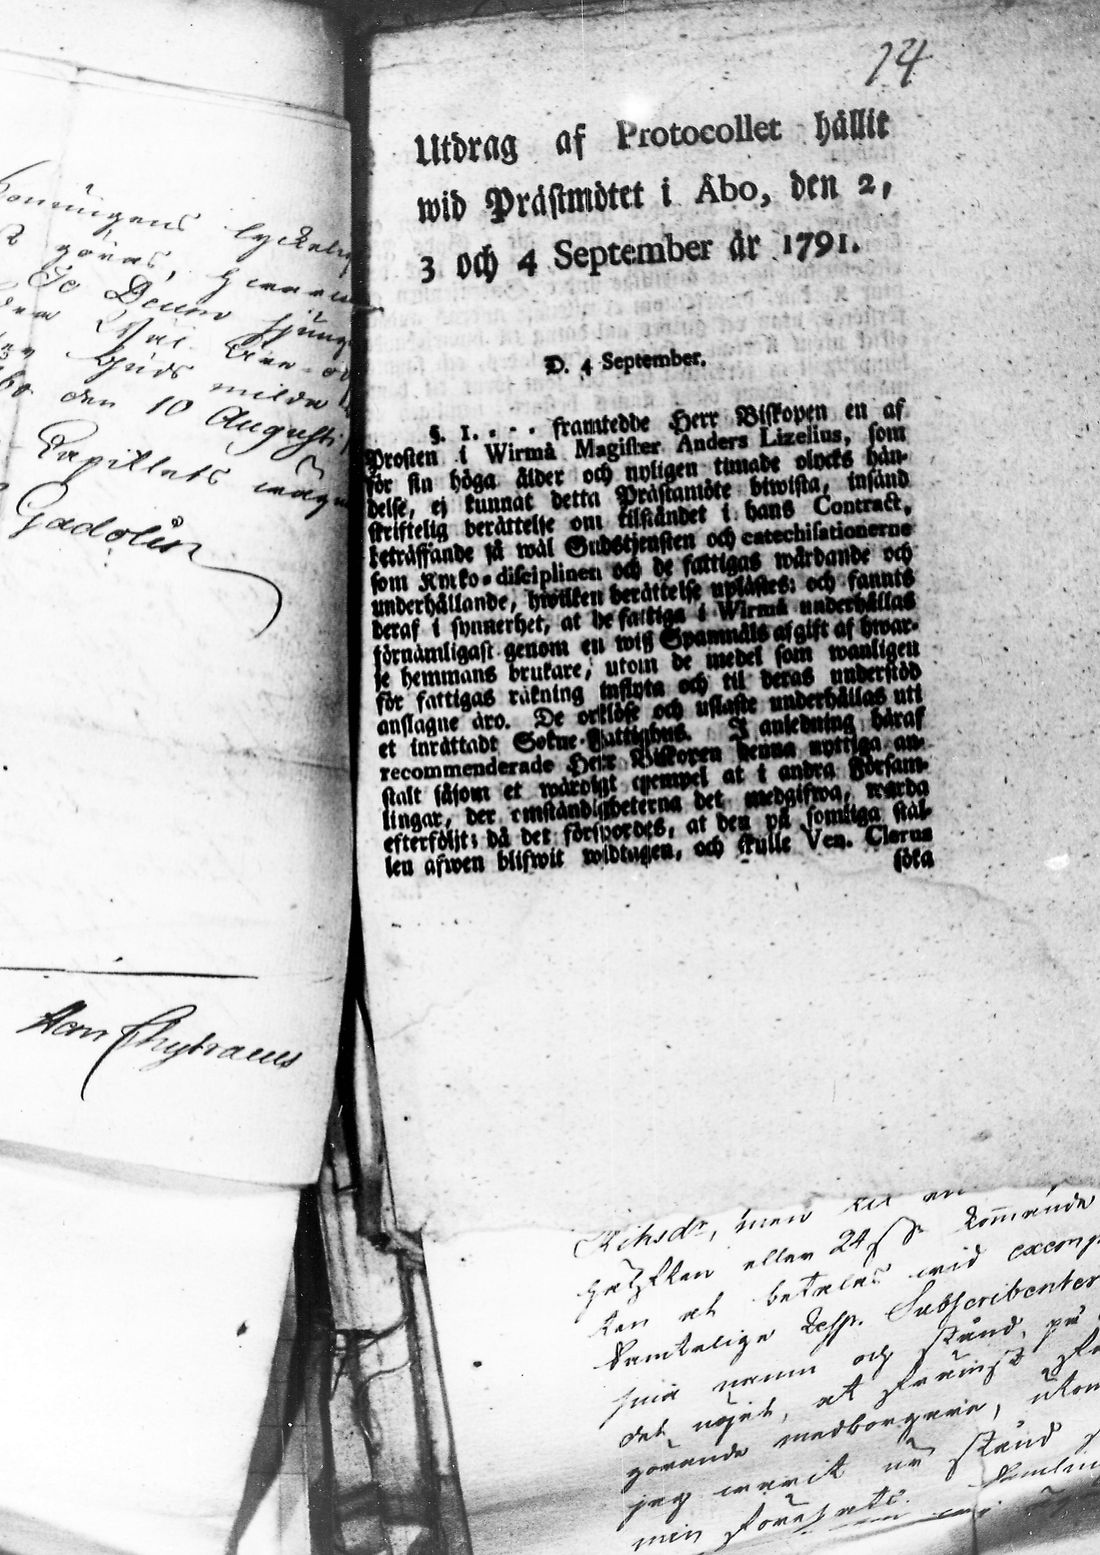 göras,
Te Deum
Guds milde
den 10 Augusti
Capitlets
Gadolin
Chytraeus
14
Utdrag af Protocollet hållit
wid Prästmötet i Åbo, den 2,
3 och 4 September år 1791.
D. 4 September.
§. 1. - - - framtedde Herr Biskopen en af
Prosten i Wirmå Magister Anders Lizelius, som
för sin höga ålder och nyligen timade olycks hän-
delse, ej kunnat detta Prästamöte biwista, insänd
skriftelig berättelse om tilståndet i hans Contract,
beträffande så wäl Gudstjensten och catechisationerne
som Kyrko-disciplinen och de fattigas wårdande och
underhållande, hwilken berättelse uplästes: och fannts
deraf i synnerhet, at de fattiga i Wirmå underhållas
förnämligast genom en wiß Spanmåls afgift af hwar-
je hemmans brukare, utom de medel som wanligen
för fattigas räkning inflyta och til deras understöd
anslagne äro. De orklöse och uslaste underhållas uti
et inrättadt Sokne-Fattighus. I anledning häraf
recommenderade Herr Biskopen denna nyttiga an-
stalt såsom et wärdigt exempel at i andra Försam-
lingar, der omständigheterna det medgifwa, warda
efterföljt; då det förspordes, at den på somliga stäl-
len afwen blifwit widtagen, och skulle Ven. Clerus
söka
Riksdr, men
hälften eller 24 ß kommande
at betalas wid
Samtelige Resp. Subscribenter
namn och stånd, på
det nöjet, at
görande medborgare, utom
jag warit stånd
min